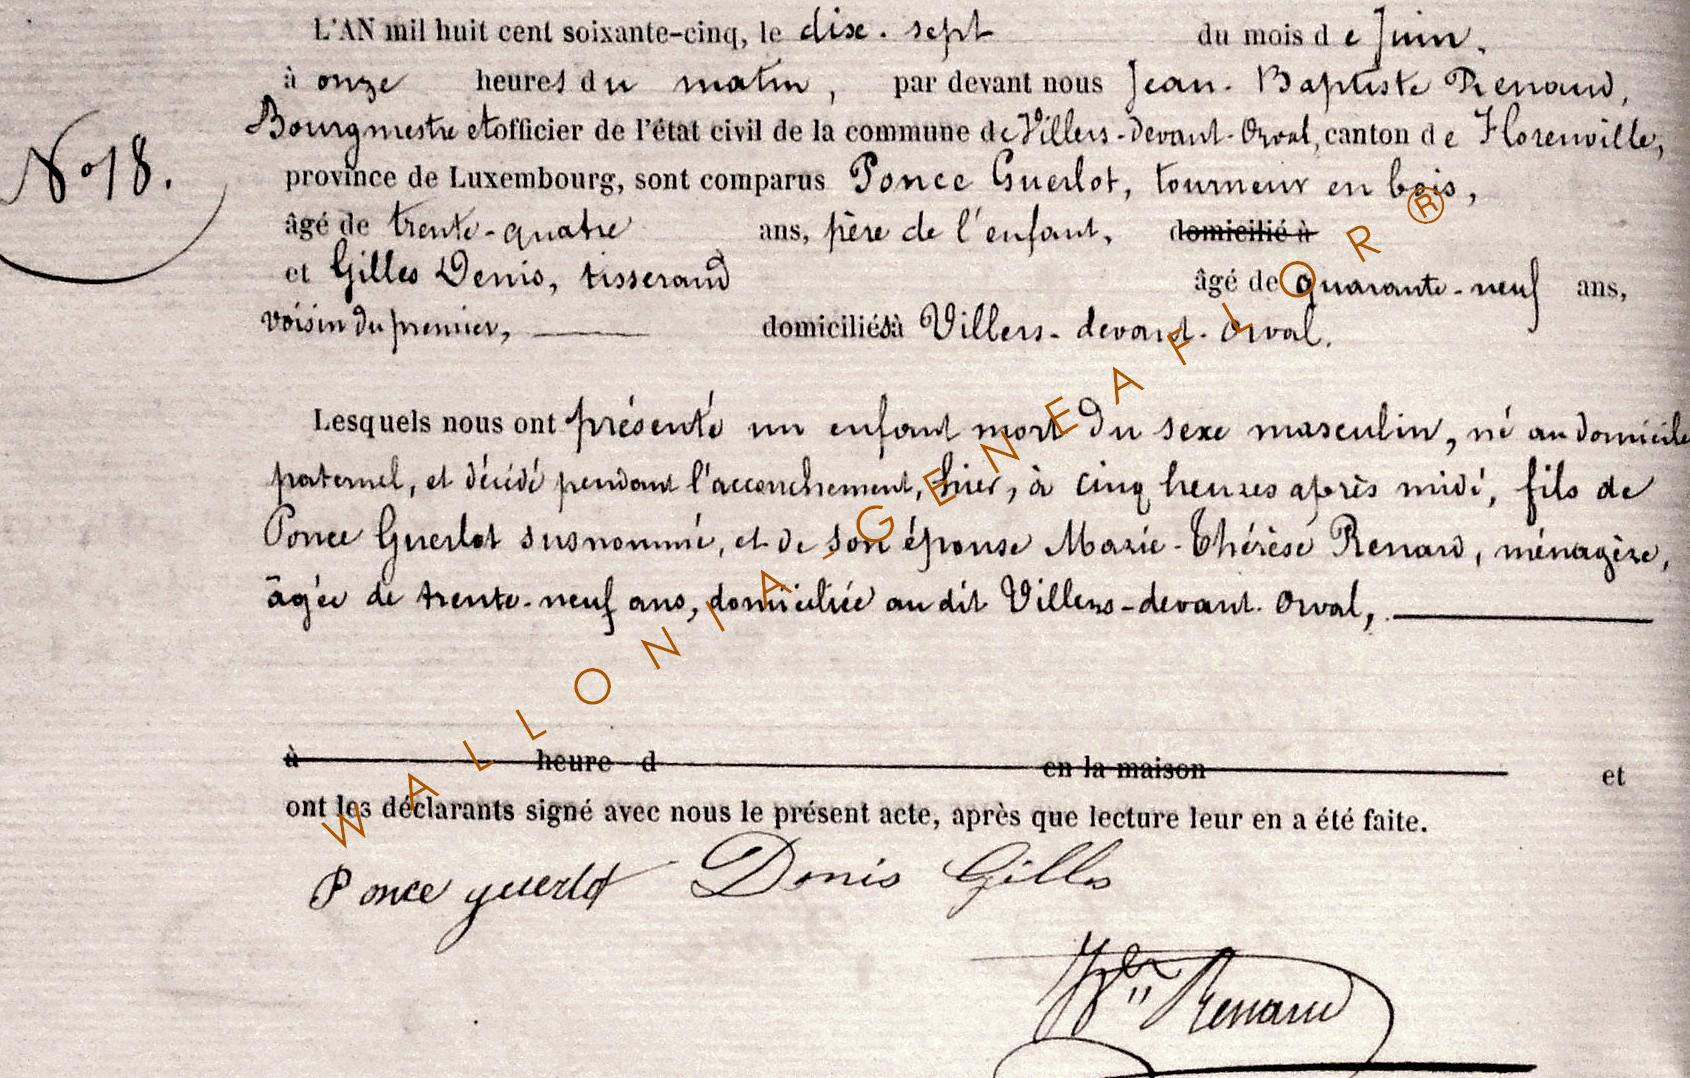 L'AN mil huit cent soixante-cinq, le dix-sept du mois de Juin,
à onze heures du matin, par devant nous Jean-Baptiste Renaud,
Bourgmestre et officier de l'état civil de la commune de Villers-devant-Orval, canton de Florenville,
N° 18.
province de Luxembourg, sont comparus Ponce Guerlot, tourneur en bois,
âgé de trente-quatre ans, père de l'enfant, domicilié à
et Gilles Denis, tisserand âgé de quarante-neuf ans,
voisin du premier, domiciliés à Villers-devant-Orval.
Lesquels nous ont présenté un enfant mort du sexe masculin, né au domicile
paternel, et décédé pendant l'accouchement, hier, à cinq heures après midi, fils de
Ponce Guerlot susnommé, et de son épouse Marie-Thérèse Renard, ménagère,
âgée de trente-neuf ans, domiciliée au dit Villers-devant-Orval,
à heure d en la maison et
ont les déclarants signé avec nous le présent acte, après que lecture leur en a été faite.
Ponce guerlot Denis Gilles
Renaud
WALLONIA-GENEAFLOR®